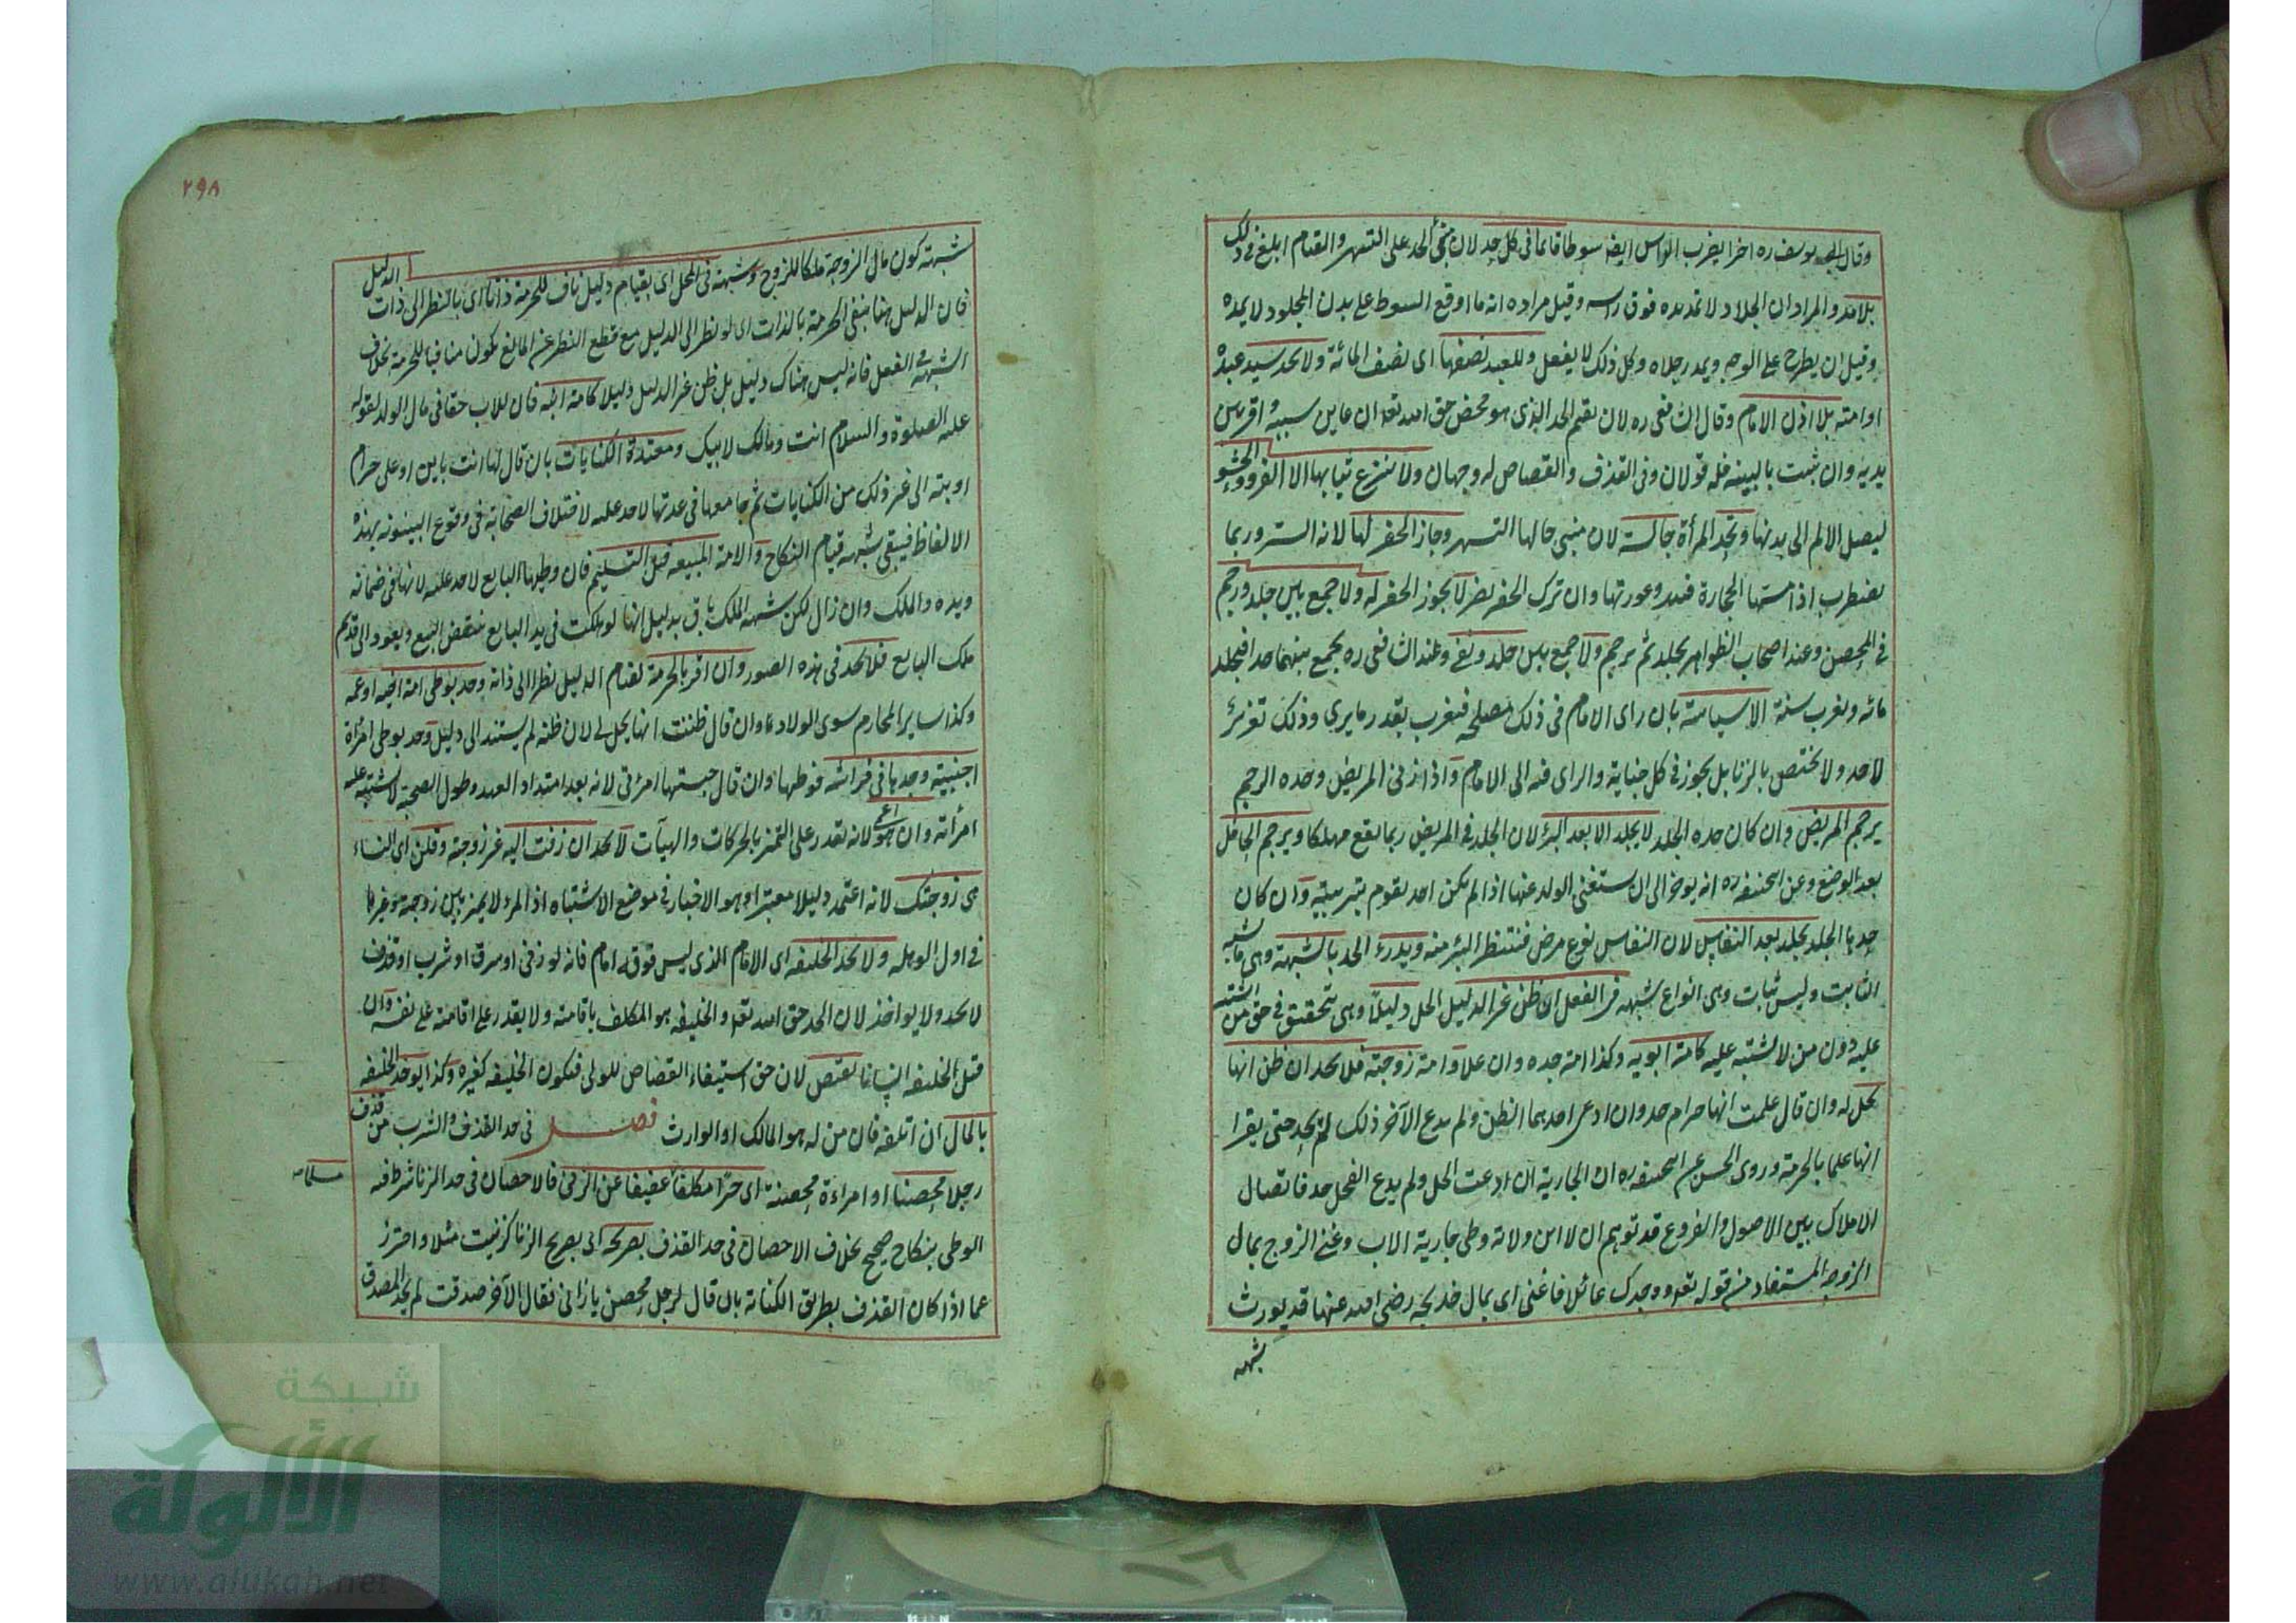 وقال ابو يوسف ره اخرا يضرب الراس ايضا سوطا قائما فى كل حد لان مبنى الحد على التشهير والقيام ابلغ فى ذلك
بلا مد والمراد ان الجلاد لا تمد يده فوق راسه وقيل مراده انه ما اوقع السوط على بدن المجلود لا يمده
وقيل ان يطرح على الوجه ويمد رجلاه وكل ذلك لا يفعل وللعبد نصفها اى نصف المائة ولا يحد سيد عبده
او امته بلا اذن الامام وقال الشافعى ره لان يقيم الحد الذى هو محض حق الله تعه ان عاين سببه و اقر بين
يديه وان ثبت بالبينه فله قولان وفى القذف والقصاص له وجهان ولا ينزع ثيابها الا الفرو والحشو
ليصل الالم الى بدنها وتحد المرأة جالسة لان مبنى حالها الستر وجاز الحفر لها لانه الستر وربما
تضطرب اذا مستها الحجارة فتبدو عورتها وان ترك الحفر لا يضر لا يجوز الحفر له ولا جمع بين جلد ورجم
فى المحصن وعند اصحاب الظواهر يجلد ثم يرجم ولا جمع بين جلد ونفى وعند الشافعى ره يجمع بينهما حدا فيجلد
مائه ويغرب سنة الا سياسة بان راى الامام فى ذلك مصلحه فيغرب بقدر ما يرى وذلك تعزير
لا حد ولا يختص بالزنا بل يجوز فى كل جناية والراى فيه الى الامام واذا زنى المريض وحده الرجم
يرجم المريض وان كان حده الجلد لا يجلد الا بعد البرء لان الجلد فى المريض ربما يقع مهلكا ويرجم الحامل
بعد الوضع وعن ابيحنيفه ره انه يوخر الى ان يستغنى الولد عنها اذا لم يكن احد يقوم بتربيته وان كان
حدها الجلد تجلد بعد النفاس لان النفاس نوع مرض فينتظر البرء منه ويدرء الحد بالشبهة وهى ما يشبه
الثابت وليس بثابت وهى انواع شبهه فى الفعل ان ظن غير الدليل الحل دليلا وهى تتحقق فى حق من اشتبه
عليه دون من لا يشتبه عليه كامة ابويه وكذا امة جده وان علا وامة زوجته فلا يحد ان ظن انها
تحل له وان قال علمت انها حرام حد وان ادعى احدهما الظن ولم يدع الآخر ذلك لم يحد حتى يقرا
انهما علما بالحرمة وروى الحسن عن ابيحنيفه ره ان الجارية ان ادعت الحل ولم يدع الفحل حد فاتصال
الاملاك بين الاصول والفروع قد توهم ان للابن ولاية وطى جارية الاب وغنى الزوج بمال
الزوجه المستفاد من قوله تعه ووجدك عائلا فاغنى اى بمال خديجه رضى الله عنها قد يورث
شبهه
٢٩٨
شبهة كون مال الزوجة ملكا للزوج وشبهة فى المحل اى بقيام دليل ناف للحرمة ذاتا اى بالنظر الى ذات الدليل
فان الدليل هنا ينفى الحرمة بالذات اى لو نظر الى الدليل مع قطع النظر عن المانع يكون منافيا للحرمة بخلاف
الشبهة فى الفعل فانه ليس هناك دليل بل ظن غير الدليل دليلا كامة ابنه فان للاب حقا فى مال الولد لقوله
عليه الصلوة والسلام انت ومالك لابيك ومعتدة الكنايات بان قال لها انت باين او على حرام
او بتة الى غير ذلك من الكنايات ثم جامعها فى عدتها لا حد عليه لاختلاف الصحابة فى وقوع البينونه بهذه
الالفاظ فيبقى شبهه قيام النكاح والامة المبيعه قبل التسليم فان وطيها البايع لا حد عليه لانها فى ضمانه
ويده والملك وان زال لكن شبهه الملك باق بدليل انها لو هلكت فى يد البايع ينتقض البيع ويعود الى قديم
ملك البايع فلا يحد فى هذه الصور وان اقر بالحرمة لقيام الدليل نظرا الى ذاته وحد بوطى امة اخيه او عمه
وكذا ساير المحارم سوى الولاد وان قال ظننت انها تحل لى لان ظنه لم يستند الى دليل وحد بوطى امرأة
اجنبية وجدها فى فراشه فوطيها وان قال حسبتها امرأتى لانه بعد امتداد العهد وطول الصحبة لا يشتبه عليه
امرأته وان هو اعمى لانه يقدر على التميز بالحركات والهيآت لا يحد ان زفت اليه غير زوجته وقلن اى النساء
هى زوجتك لانه اعتمد دليلا معتبرا وهو الاخبار فى موضع الاشتباه اذ المرء لا يميز بين زوجته وغيرها
فى اول الوهله ولا يحد الخليفه اى الامام الذى ليس فوقه امام فانه لو زنى او سرق او شرب او قذف
لا يحد ولا يواخذ لان الحد حق الله تعه والخليفه هو المكلف باقامته ولا يقدر على اقامته على نفسه وان
قتل الخليفه انسانا يقتص لان حق استيفاء القصاص للولى فيكون الخليفه كغيره وكذا يوخذ الخليفه
بالمال ان اتلفه فان من له هو المالك او الوارث فصل فى حد القذف والشرب من قذف
رجلا محصنا او امراءة محصنة اى حرا مكلفا عفيفا عن الزنى فالاحصان فى حد الزنا شرط فيه
الوطى بنكاح صحيح بخلاف الاحصان فى حد القذف بصريحه اى بصريح الزنا كزنيت مثلا واحترز
عما اذا كان القذف بطريق الكناية بان قال لرجل محصن يا زانى فقال الآخر صدقت لم يحد المصدق
شبكة
الألوكة
www.alukah.net